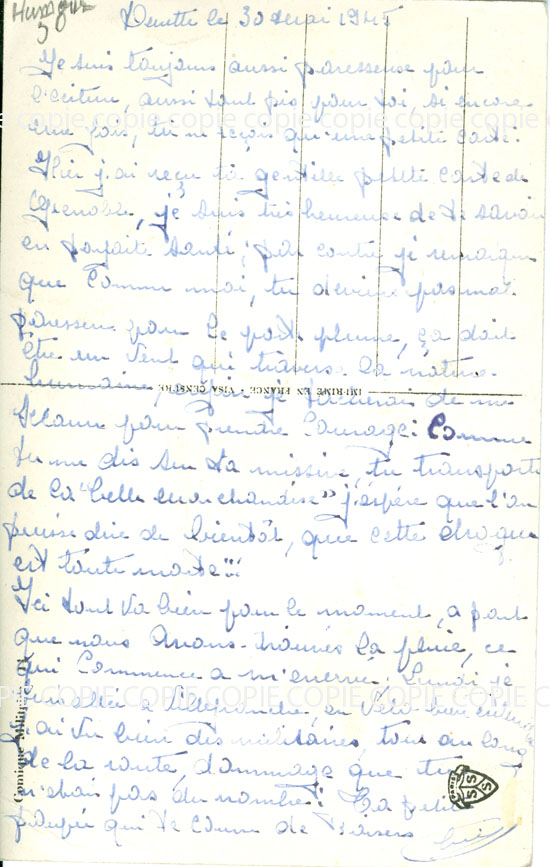 Humour
le 30 Mai 1945
Je suis toujours aussi paresseuse pour
l'écriture, aussi tant pis pour toi, si encore
une fois, tu ne reçois qu'une petite carte.
Hier j'ai reçu ta gentille petite carte de
Grenoble, je suis très heureuse de te savoir
en parfaite santé, par contre je remarque
que comme moi, tu deviens pas mal
paresseux pour le porte plume, ça doit
être un vent qui traverse la nature
humaine, je de me
pour prendre courage: Comme
tu me dis sur ta missive, tu transporte
de la "belle marchandise" j'espère que l'on
puisse dire de bientôt, que cette drogue
est toute morte"!!
Ici tout va bien pour le moment, a part
que nous avons la pluie, ce
qui commence a m'énerver. Lundi je
a en vélo
j'ai vu bien des militaires, tout au long
de la route, dommage que tu
n'étais pas du nombre! Ta petite
poupée qui te de baisers
IMPRIMÉ EN FRANCE - VISA CENSURE
Comique Militaire
COPIE COPIE COPIE COPIE COPIE COPIE
COPIE COPIE COPIE COPIE COPIE COPIE